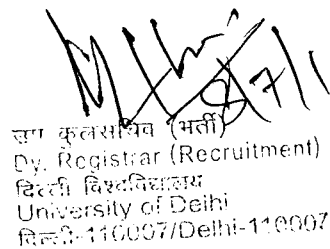 8/7/1
उप कुलसचिव (भर्ती)
Dy. Registrar (Recruitment)
दिल्ली विश्वविद्यालय
University of Delhi
दिल्ली-110007/Delhi-110007